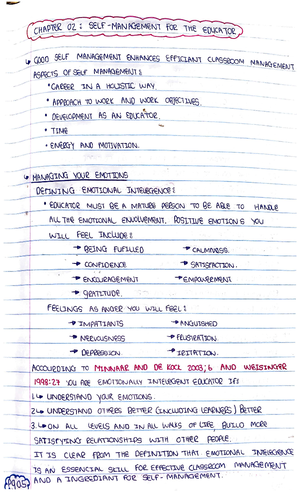 CHAPTER 02: SELF-MANAGEMENT FOR THE EDUCATOR
↳ GOOD SELF MANAGEMENT ENHANCES EFFICIANT CLASSROOM MANAGEMENT
ASPECTS OF SELF MANAGEMENT:
• CAREER IN A HOLISTIC WAY.
• APPROACH TO WORK AND WORK OBJECTIVES.
• DEVELOPMENT AS AN EDUCATOR.
• TIME
• ENERGY AND MOTIVATION.
↳ MANAGING YOUR EMOTIONS
DEFINING EMOTIONAL INTELERGENCE:
• EDUCATOR MUST BE A MATURE PERSON TO BE ABLE TO HANDLE
ALL THE EMOTIONAL ENVOLVEMENT. POSITIVE EMOTIONS YOU
WILL FEEL INCLUDE:
→ BEING FUFILLED → CALMNESS.
→ CONFIDENCE → SATISFACTION.
→ ENCOURAGEMENT → EMPOWERMENT
→ GRATITUDE.
FEELINGS AS ANGER YOU WILL FEEL:
→ IMPATIANTS → ANGUISHED
→ NERVOUSNESS → FRUSTRATION
→ DEPRESSION → IRITATION.
ACCOURDING TO MINNAAR AND DE KOCK 2003:6 AND WEISINGER
1998:27 YOU ARE EMOTIONALLY INTELERGENT EDUCATOR IF:
1.↳ UNDERSTAND YOUR EMOTIONS.
2.↳ UNDERSTAND OTHERS BETTER (INCLUDING LEARNERS) BETTER
3.↳ ON ALL LEVELS AND IN ALL WALKS OF LIFE BUILD MORE
SATISFYING RELATIONSHIPS WITH OTHER PEOPLE.
IT IS CLEAR FROM THE DEFINITION THAT EMOTIONAL INTELERGENCE
IS AN ESSENCIAL SKILL FOR EFFECTIVE CLASSROOM MANAGEMENT
AND A INGREDIANT FOR SELF-MANAGEMENT.